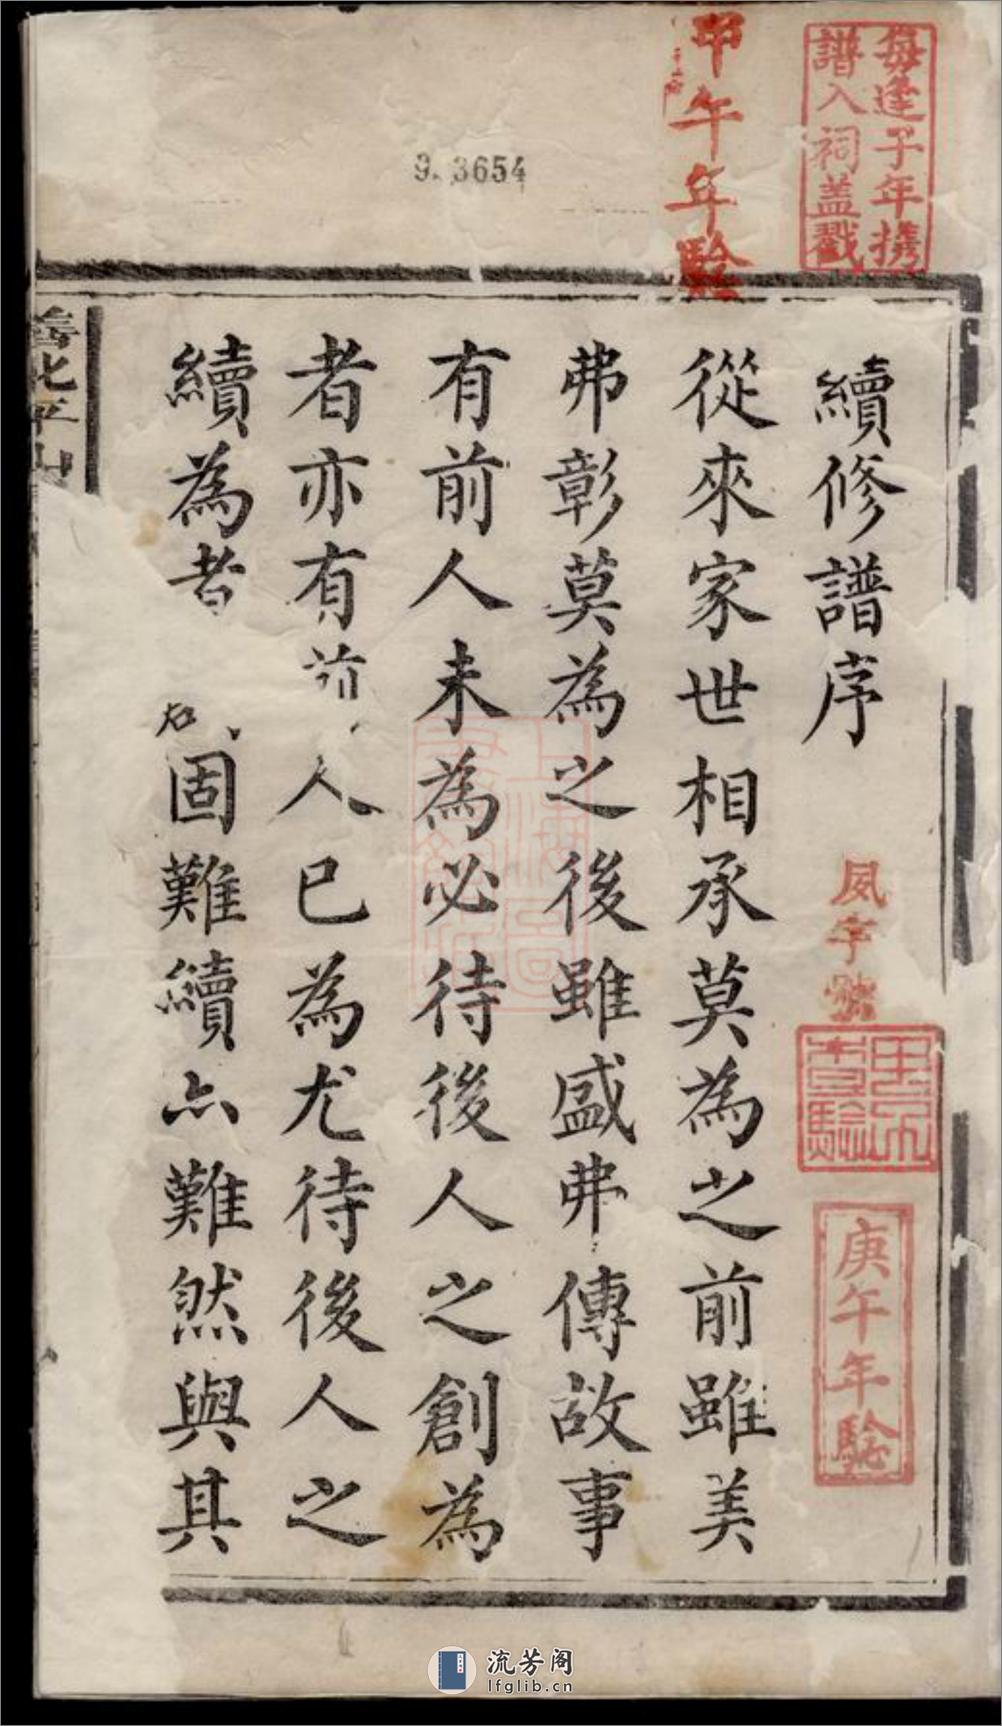 每逢子年携
譜入祠盖戳
甲午年驗
9. 3654
續修譜序
鳳字號
庚午年驗
從來家世相承莫為之前雖美
弗彰莫為之後雖盛弗傳故事
有前人未為必待後人之創為
者亦有前人已為尤待後人之
續為者
固難續亦難然與其
善化平山
流芳阁
lfglib.cn